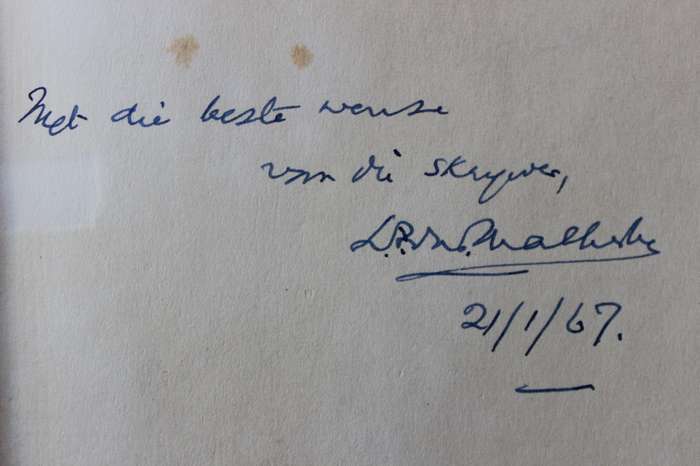 Met die beste wense
van die skrywer,
D.F.W. Malherbe
21/1/67.